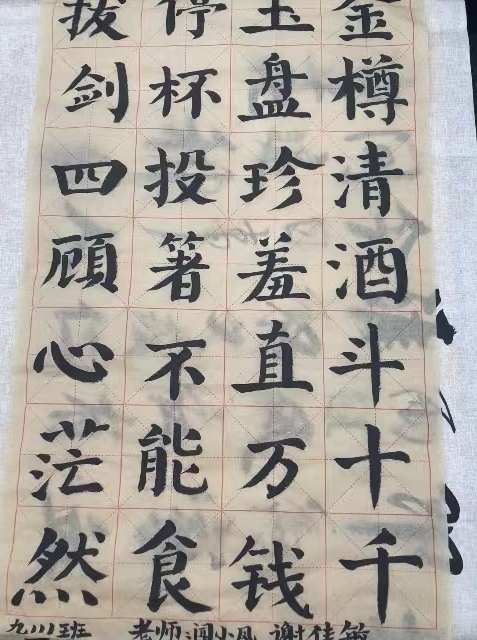 金樽清酒斗十千
玉盘珍羞直万钱
停杯投箸不能食
拔剑四顾心茫然
班 老师:闻小凤 谢佳敏